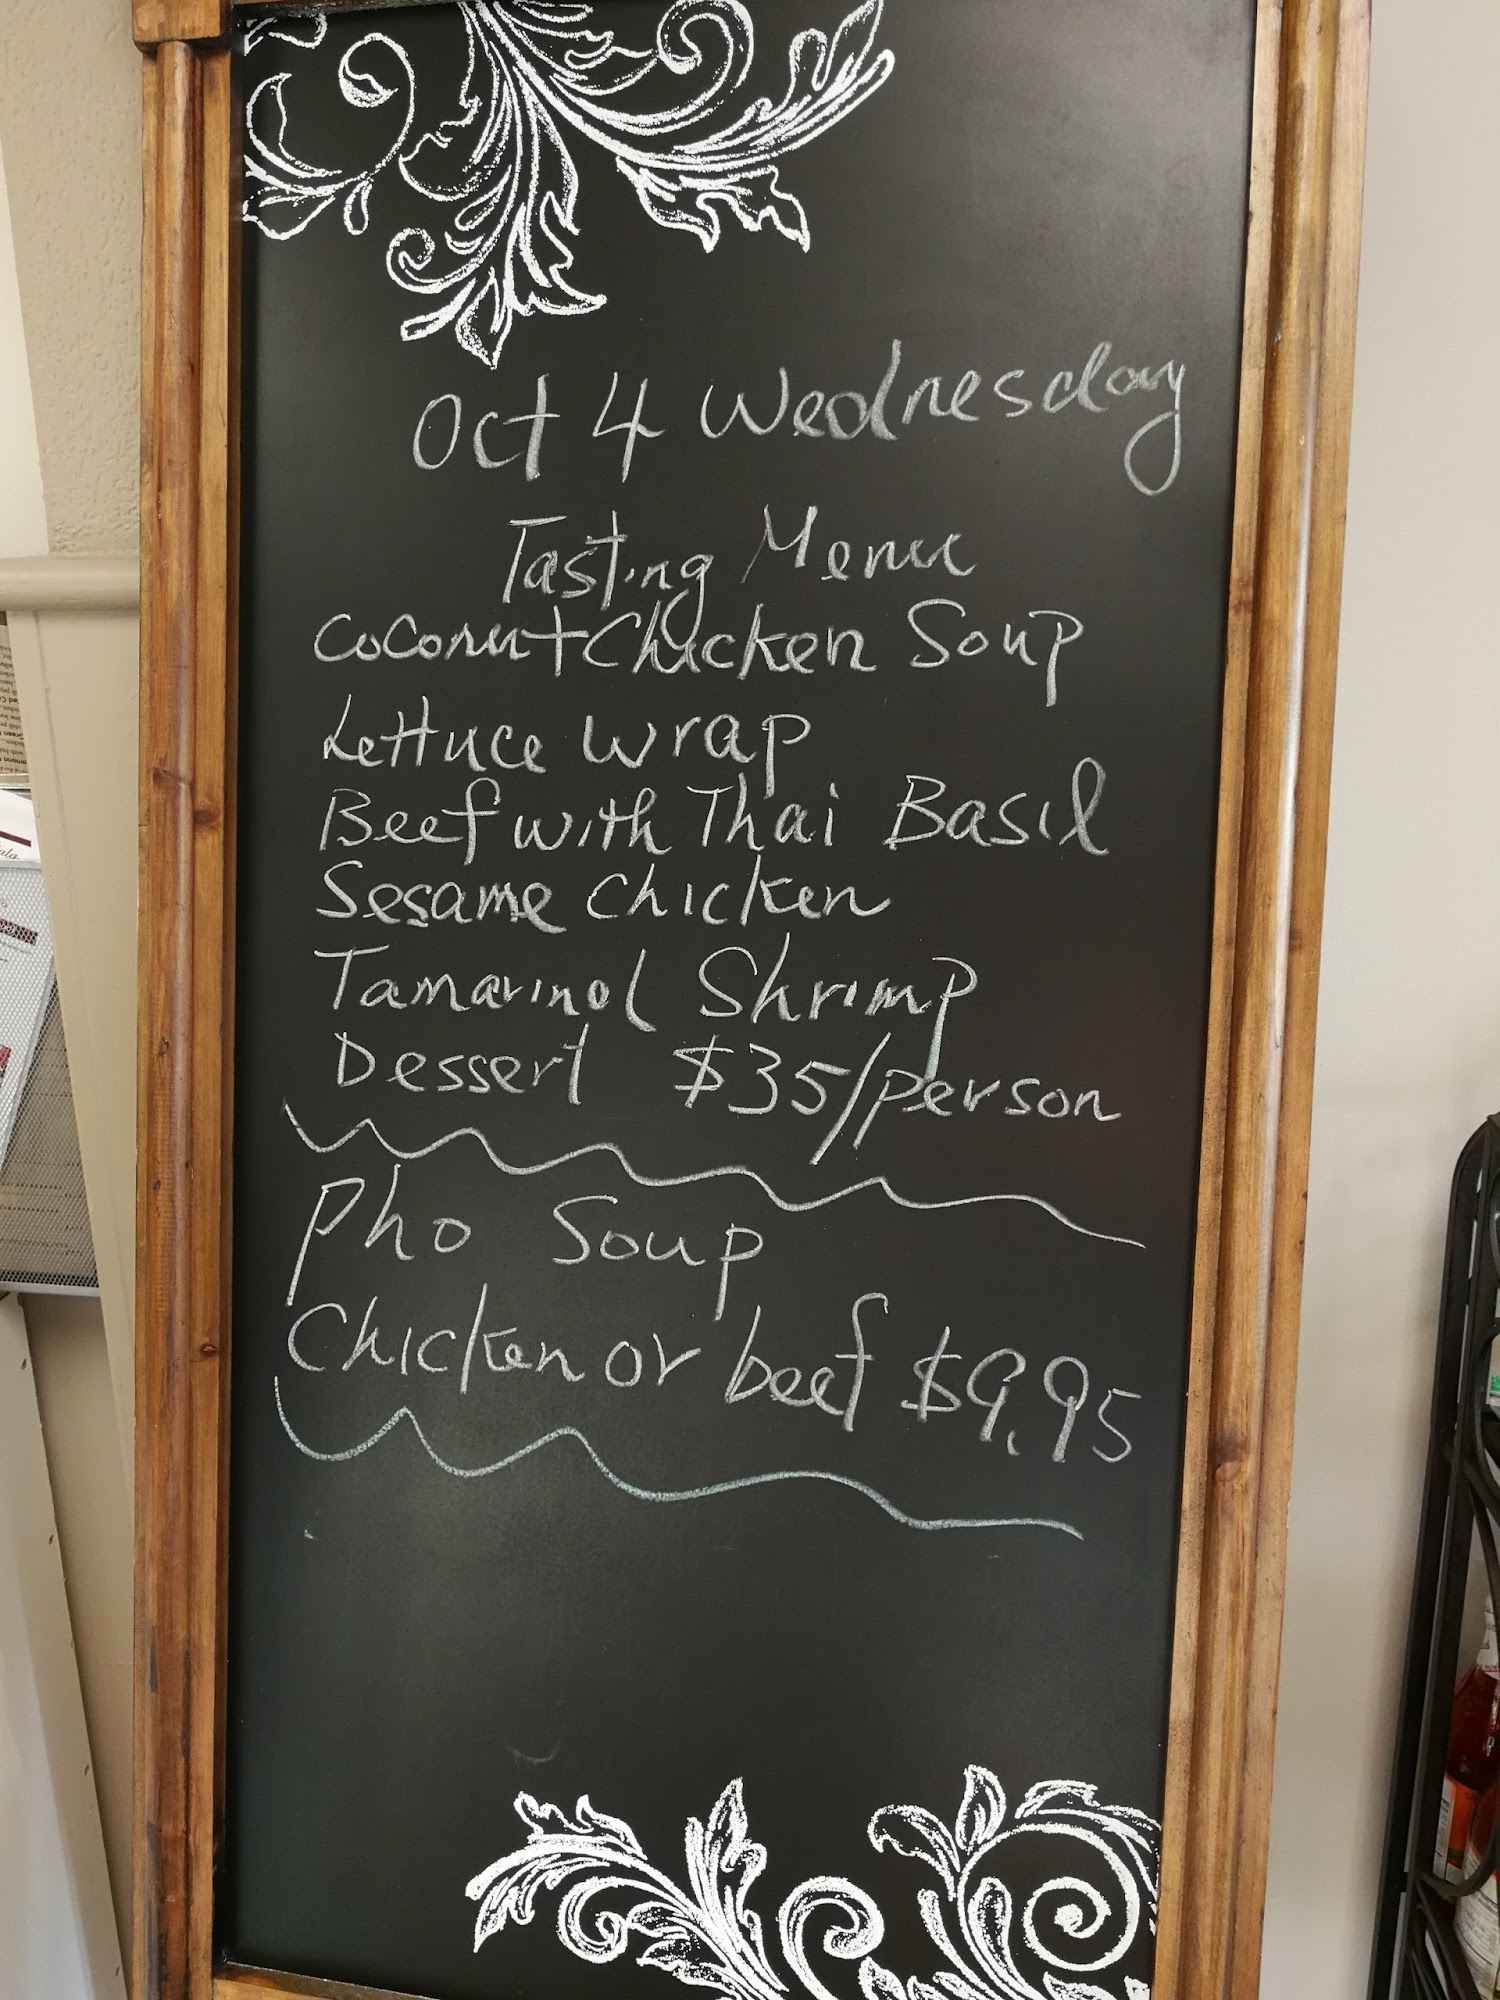 Oct 4 Wednesday
Tasting Menu
Coconut Chicken Soup
Lettuce wrap
Beef with Thai Basil
Sesame chicken
Tamarind Shrimp
Dessert $35/person
Pho Soup
Chicken or beef $9.95